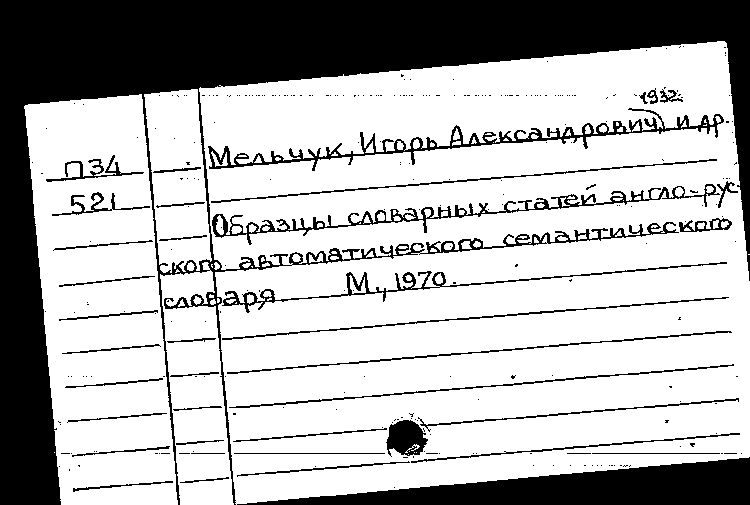 1932
П34 Мельчук, Игорь Александрович, и др.
521
Образцы словарных статей англо-рус-
ского автоматического семантического
словаря М., 1970.